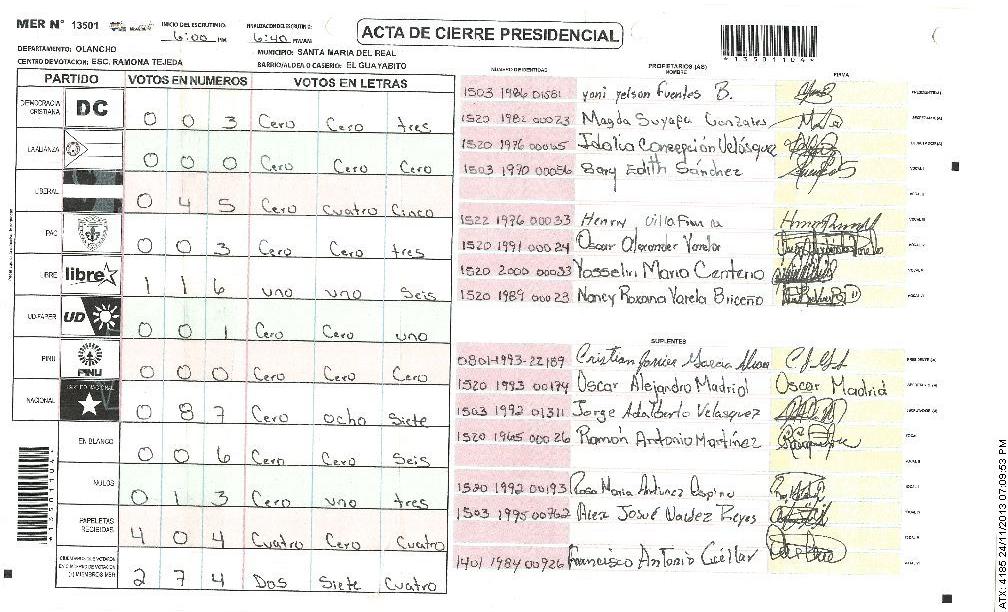 MER N° 13501 INICIO DEL ESCRUTINIO: 6:00 PM FINALIZACION DEL ESCRUTINIO: 6:40 PM/AM
ACTA DE CIERRE PRESIDENCIAL
*13501104*
DEPARTAMENTO: OLANCHO MUNICIPIO: SANTA MARIA DEL REAL
CENTRO DE VOTACION: ESC. RAMONA TEJEDA BARRIO/ALDEA O CASERIO: EL GUAYABITO
PARTIDO VOTOS EN NUMEROS VOTOS EN LETRAS
DEMOCRACIA CRISTIANA DC 0 0 3 Cero Cero tres
LA ALIANZA 0 0 0 Cero Cero Cero
LIBERAL 0 4 5 Cero Cuatro Cinco
PAC 0 0 3 Cero Cero tres
LIBRE libre 1 1 6 uno uno Seis
UD-FAPER UD 0 0 1 Cero Cero uno
PINU PINU 0 0 0 Cero Cero Cero
NACIONAL 0 8 7 Cero ocho Siete
EN BLANCO 0 0 6 Cero Cero Seis
NULOS 0 1 3 Cero uno tres
PAPELETAS RECIBIDAS 4 0 4 Cuatro Cero Cuatro
2 7 4 Dos Siete Cuatro
PROPIETARIOS (AS)
NUMERO DE IDENTIDAD NOMBRE FIRMA
1503 1986 01581 yoni yelson Fuentes B.
1520 1982 00023 Magda Suyapa Gonzales
1520 1976 00065 Idalia Concepción Velásquez
1503 1970 00056 Sary Edith Sánchez
1522 1976 00033 Henry
1520 1991 00024 Oscar Alexander Varela
1520 2000 00033 Yosselin Maria Centeno
1520 1989 00023 Nancy Roxana Varela Briceño
SUPLENTES
0801-1993-22189 Cristian Javier Garcia
1520 1993 00174 Oscar Alejandro Madrid Oscar Madrid
1503 1992 01311 Jorge Adalberto Velasquez
1520 1965 00026 Ramón Antonio Martínez
1520 1992 00193 Rosa Maria Antunez Ospino
1503 1995 00762 Alex Josué Valdez Reyes
1401 1984 00926 Francisco Antonio Cuéllar
*13501104*
ATX: 4185 24/11/2013 07:09:53 PM